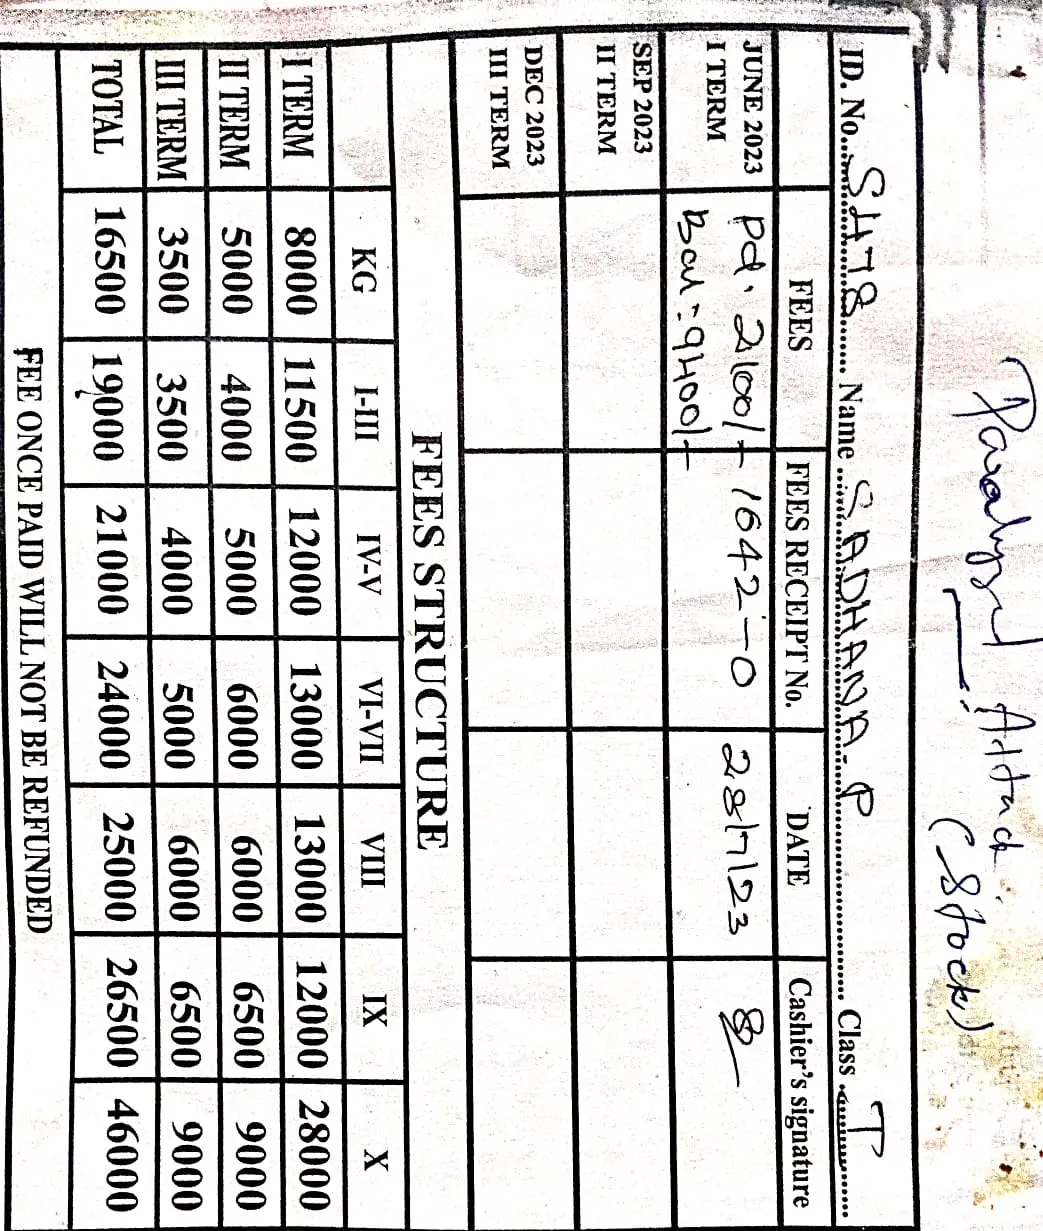 Paralysed Attack.
(Stock)
ID. No. SH78 Name SADHANA. P Class I
FEES FEES RECEIPT No. DATE Cashier's signature
JUNE 2023
I TERM
Pd. 2100/- 1642-0 28/7/23
Bal = 9400/-
SEP 2023
II TERM
DEC 2023
III TERM
FEES STRUCTURE
KG I-III IV-V VI-VII VIII IX X
I TERM 8000 11500 12000 13000 13000 12000 28000
II TERM 5000 4000 5000 6000 6000 6500 9000
III TERM 3500 3500 4000 5000 6000 6500 9000
TOTAL 16500 19000 21000 24000 25000 26500 46000
FEE ONCE PAID WILL NOT BE REFUNDED